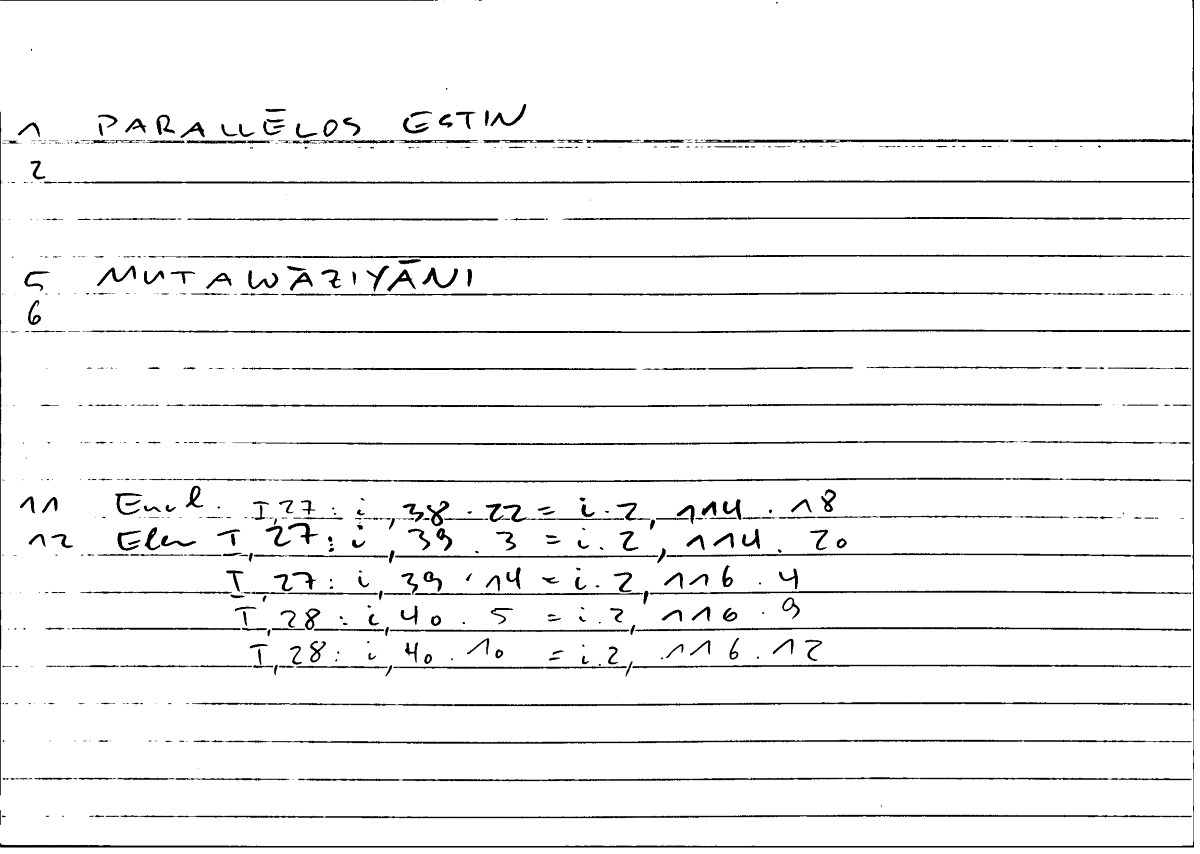 1 PARALLĒLOS ESTIN
2
5 MUTAWĀZIYĀNI
6
11 Eucl. I,27: i,38.22 = i.2,114.18
12 Elem I,27: i,39.3 = i.2,114.20
I,27: i,39.14 = i.2,116.4
I,28: i,40.5 = i.2,116.9
I,28: i,40.10 = i.2,116.12